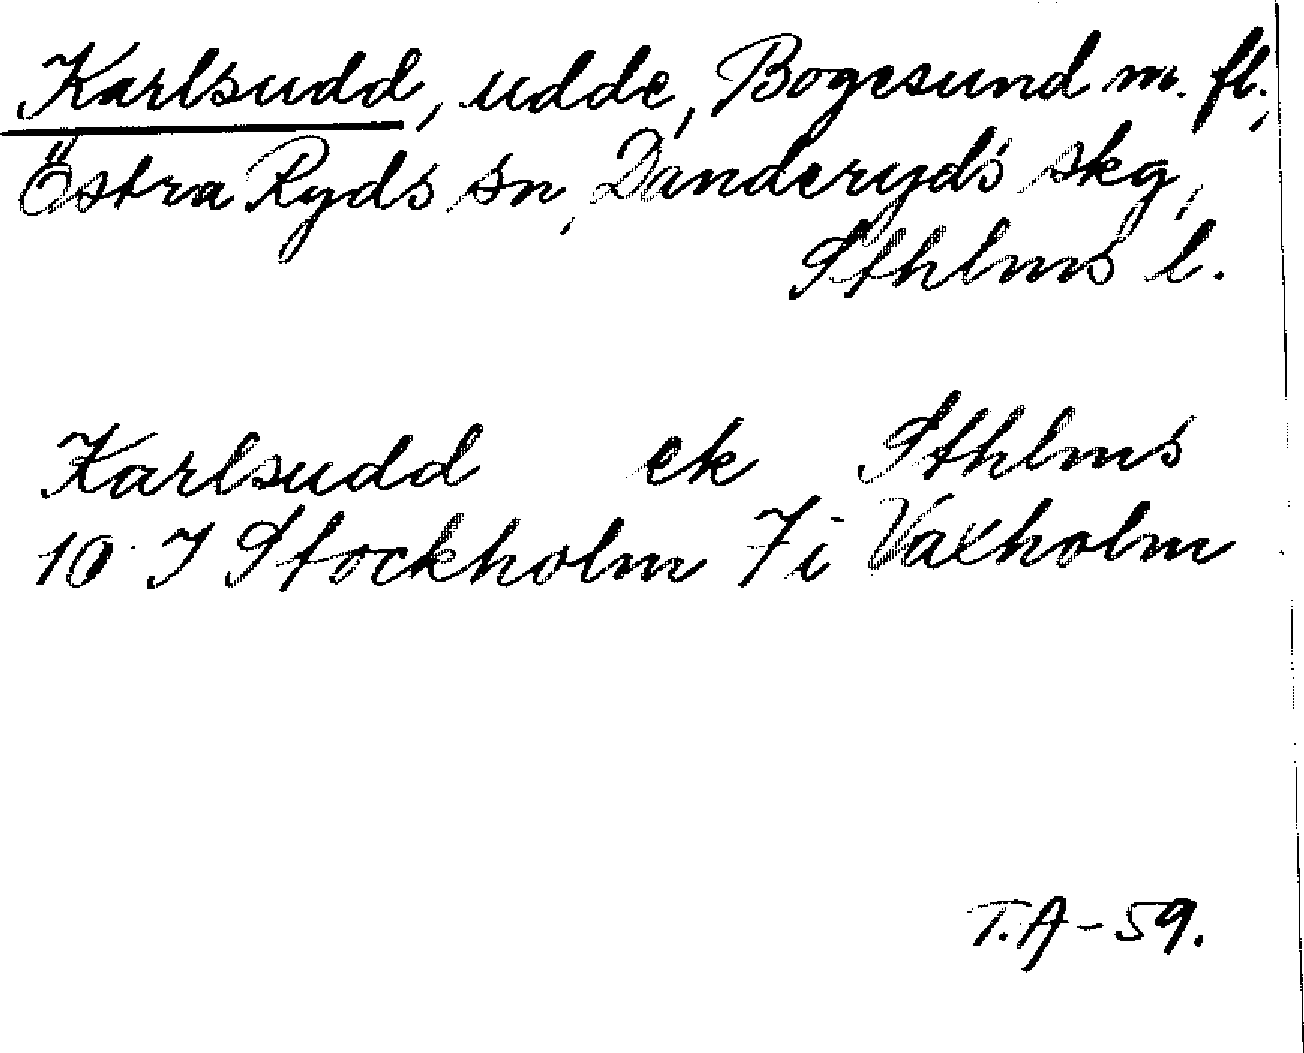 Karlsudd, udde, Bogesund m. fl.,
Östra Ryds sn, Danderyds skg,
Sthlms l.
Karlsudd ek Sthlms
10 I Stockholm 7 i Vaxholm
T.A-59.